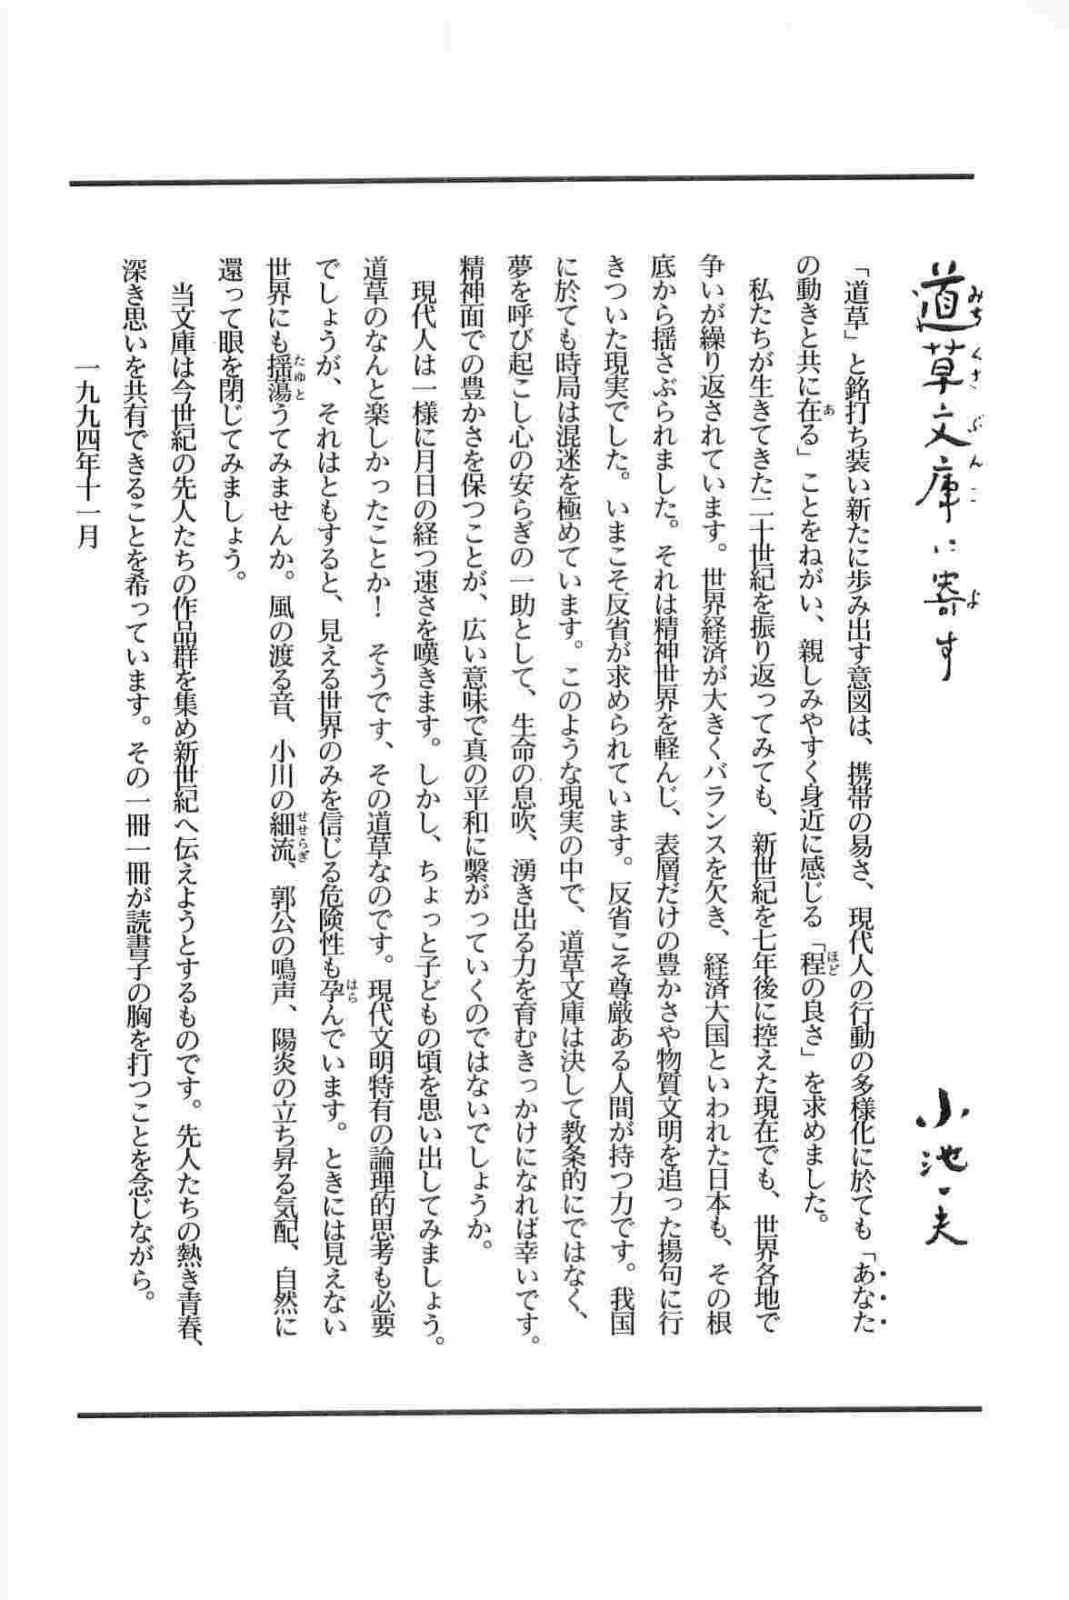 道草文庫に寄す　小池一夫
「道草」と銘打ち装い新たに歩み出す意図は、携帯の易さ、現代人の行動の多様化に於ても「あなた
の動きと共に在る」ことをねがい、親しみやすく身近に感じる「程の良さ」を求めました。
私たちが生きてきた二十世紀を振り返ってみても、新世紀を七年後に控えた現在でも、世界各地で
争いが繰り返されています。世界経済が大きくバランスを欠き、経済大国といわれた日本も、その根
底から揺さぶられました。それは精神世界を軽んじ、表層だけの豊かさや物質文明を追った揚句に行
きついた現実でした。いまこそ反省が求められています。反省こそ尊厳ある人間が持つ力です。我国
に於ても時局は混迷を極めています。このような現実の中で、道草文庫は決して教条的にではなく、
夢を呼び起こし心の安らぎの一助として、生命の息吹、湧き出る力を育むきっかけになれば幸いです。
精神面での豊かさを保つことが、広い意味で真の平和に繋がっていくのではないでしょうか。
現代人は一様に月日の経つ速さを嘆きます。しかし、ちょっと子どもの頃を思い出してみましょう。
道草のなんと楽しかったことか！　そうです、その道草なのです。現代文明特有の論理的思考も必要
でしょうが、それはともすると、見える世界のみを信じる危険性も孕んでいます。ときには見えない
世界にも揺蕩うてみませんか。風の渡る音、小川の細流、郭公の鳴声、陽炎の立ち昇る気配、自然に
還って眼を閉じてみましょう。
当文庫は今世紀の先人たちの作品群を集め新世紀へ伝えようとするものです。先人たちの熱き青春、
深き思いを共有できることを希っています。その一冊一冊が読書子の胸を打つことを念じながら。
一九九四年十一月